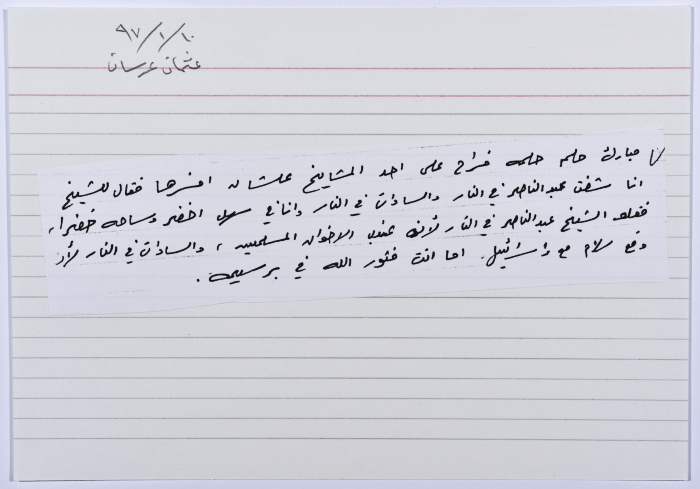 ٩٧/١/١٠
عثمان عرسان
مبارك حلم حلمه فراح على احد المشايخ علشان افسرها فقال للشيخ
انا شفت عبد الناصر في النار والسادات في النار وانا في سهل اخضر وساحه خضراء
فقله الشيخ عبد الناصر في النار لأنه عذب الاخوان المسلمين ، والسادات في النار لأنه
وقع سلام مع اسرائيل. اما انت فثور الله في برسيمه .